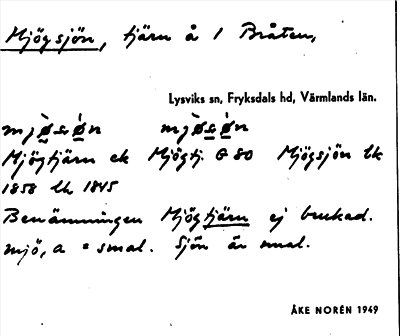 Mjögsjön, tjärn å 1 Bråten,
Lysviks sn, Fryksdals hd, Värmlands län.
Mjögtjärn ek Mjögtj. G 80 Mjögsjön lk
1858 lh 1845
Benämningen Mjögtjärn ej brukad.
mjö, a = smal. Sjön är smal.
ÅKE NORÉN 1949